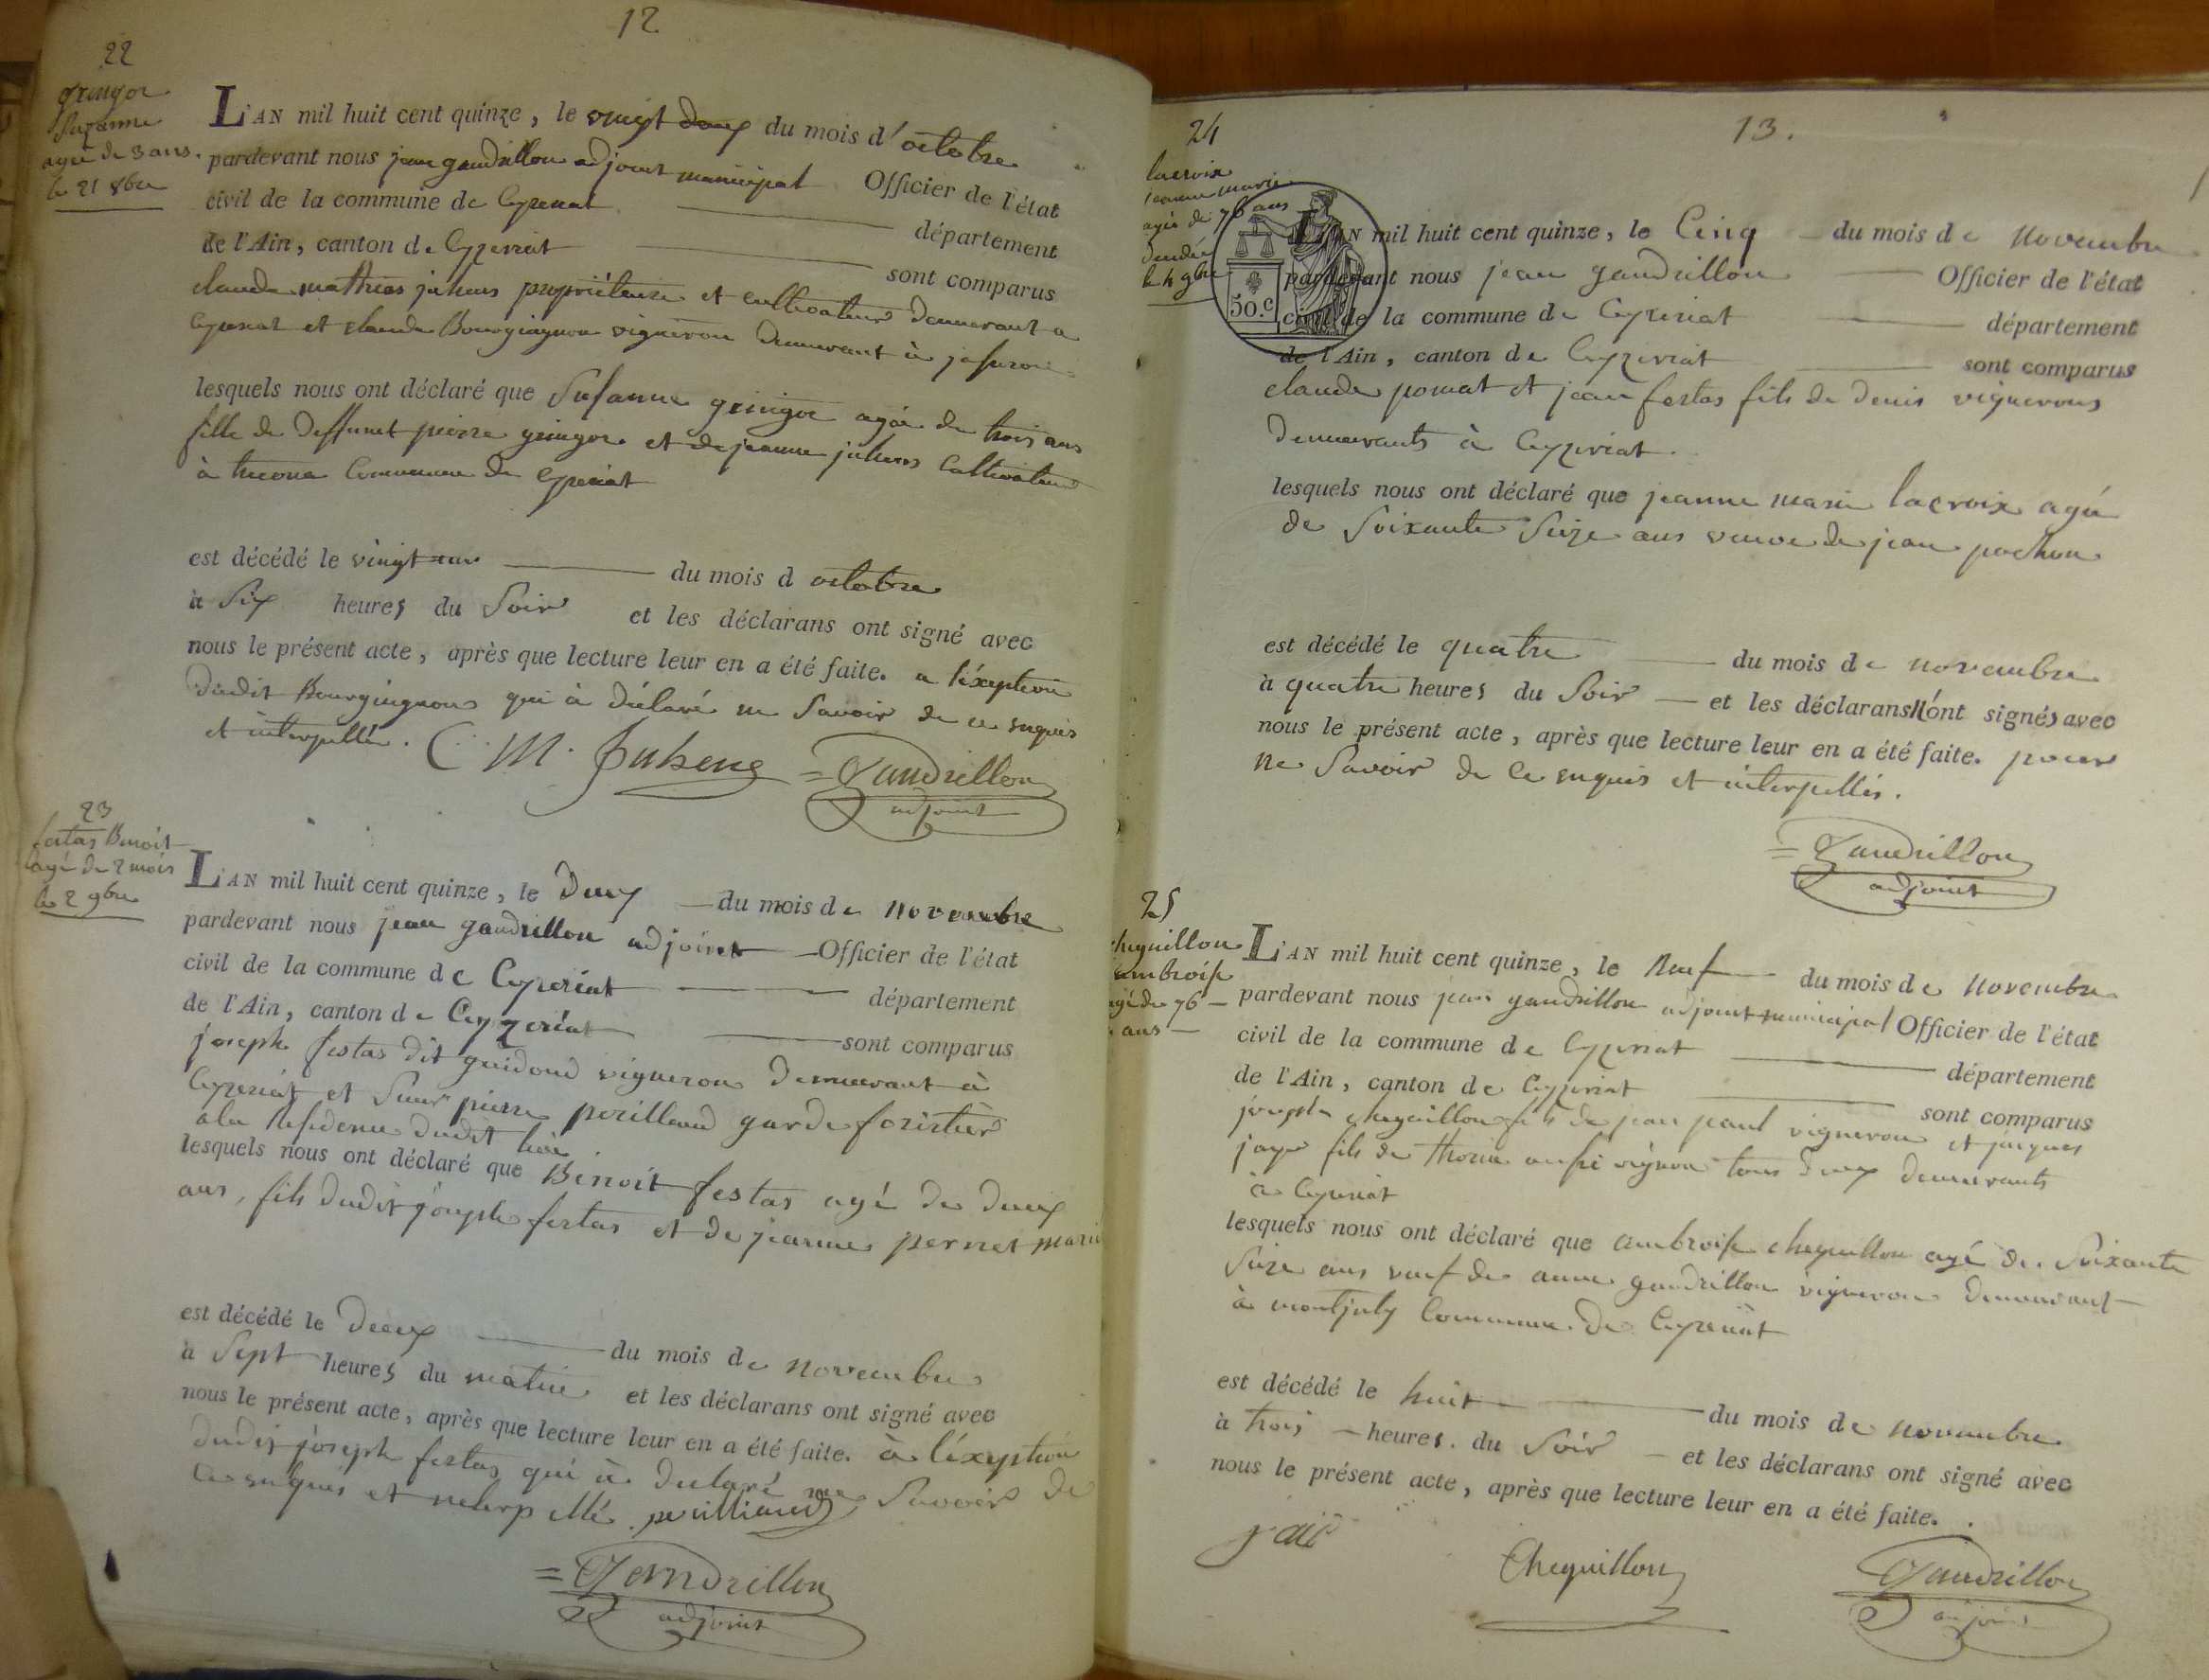 12
22
gringoz
Suzanne
agée de 3 ans.
le 21 8bre
L'AN mil huit cent quinze, le vingt deux du mois d'octobre
pardevant nous jean gaudrillon adjoint municipal Officier de l'état
civil de la commune de Ceyzeriat département
de l'Ain, canton de Ceyzeriat sont comparus
claude mathieu juhens propriétaire et cultivateur demeurant a
Ceyzeriat et claude Bourguignon vigneron demeurant à jasseron
lesquels nous ont déclaré que Susanne gringoz agée de trois ans
fille de deffunct pierre gringoz et de jeanne juhens Cultivateurs
à Commune de Ceyzeriat
est décédé le vingt un du mois d octobre
à Six heures du Soir et les déclarans ont signé avec
nous le présent acte, après que lecture leur en a été faite. a l'éxeption
dudit Bourguignon qui à déclaré ne Savoir de ce enquis
et interpellé. C. M. Juhens = Gaudrillon
adjoint
23
festas Benoit
agé de 2 mois
le 2 9bre
L'AN mil huit cent quinze, le Deux du mois de novembre
pardevant nous jean gaudrillon adjoint Officier de l'état
civil de la commune de Ceyzeriat département
de l'Ain, canton de Ceyzeriat sont comparus
joseph festas dit guidoud vigneron demeurant à
Ceyzeriat et Sieur pierre perilliaud garde foristier
à la Résidence dudit lieu
lesquels nous ont déclaré que Benoit festas agé de deux
ans, fils dudit joseph festas et de jeanne pernet mariés
est décédé le deux du mois de novembre
à Sept heures du matin et les déclarans ont signé avec
nous le présent acte, après que lecture leur en a été faite. à l'éxeption
dudit joseph festas qui à declaré ne Savoir de
ce enquis et interpellé. perilliaud
= Gaudrillon
adjoint
13.
24
lacroix
jeanne marie
agée de 76 ans
Décédée
le 4 9bre
50.c
L'AN mil huit cent quinze, le Cinq du mois de novembre
pardevant nous jean gaudrillon Officier de l'état
civil de la commune de Ceyzeriat département
de l'Ain, canton de Ceyzeriat sont comparus
claude pomat et jean festas fils de denis vignerons
demeurants à Ceyzeriat.
lesquels nous ont déclaré que jeanne marie lacroix agée
de Soixante Seize ans veuve de jean pochon
est décédé le quatre du mois de novembre
à quatre heures du Soir et les déclarans N'ont signés avec
nous le présent acte, après que lecture leur en a été faite. pour
ne Savoir de ce enquis et interpellés.
= Gaudrillon
adjoint
25
cheguillon
ambroise
agé de 76
ans
L'AN mil huit cent quinze, le Neuf du mois de novembre
pardevant nous jean gaudrillon adjoint municipal Officier de l'état
civil de la commune de Ceyzeriat département
de l'Ain, canton de Ceyzeriat sont comparus
joseph cheguillon fils de jean paul vigneron et jacques
jaye fils de aussi vigneron tous deux demeurants
à Ceyzeriat
lesquels nous ont déclaré que ambroise cheguillon agé de Soixante
Seize ans veuf de anne gaudrillon vigneron demeurant
à montjuly Commune de Ceyzeriat
est décédé le huit du mois de novembre
à trois heures du Soir et les déclarans ont signé avec
nous le présent acte, après que lecture leur en a été faite.
Cheguillon Gaudrillon
adjoint